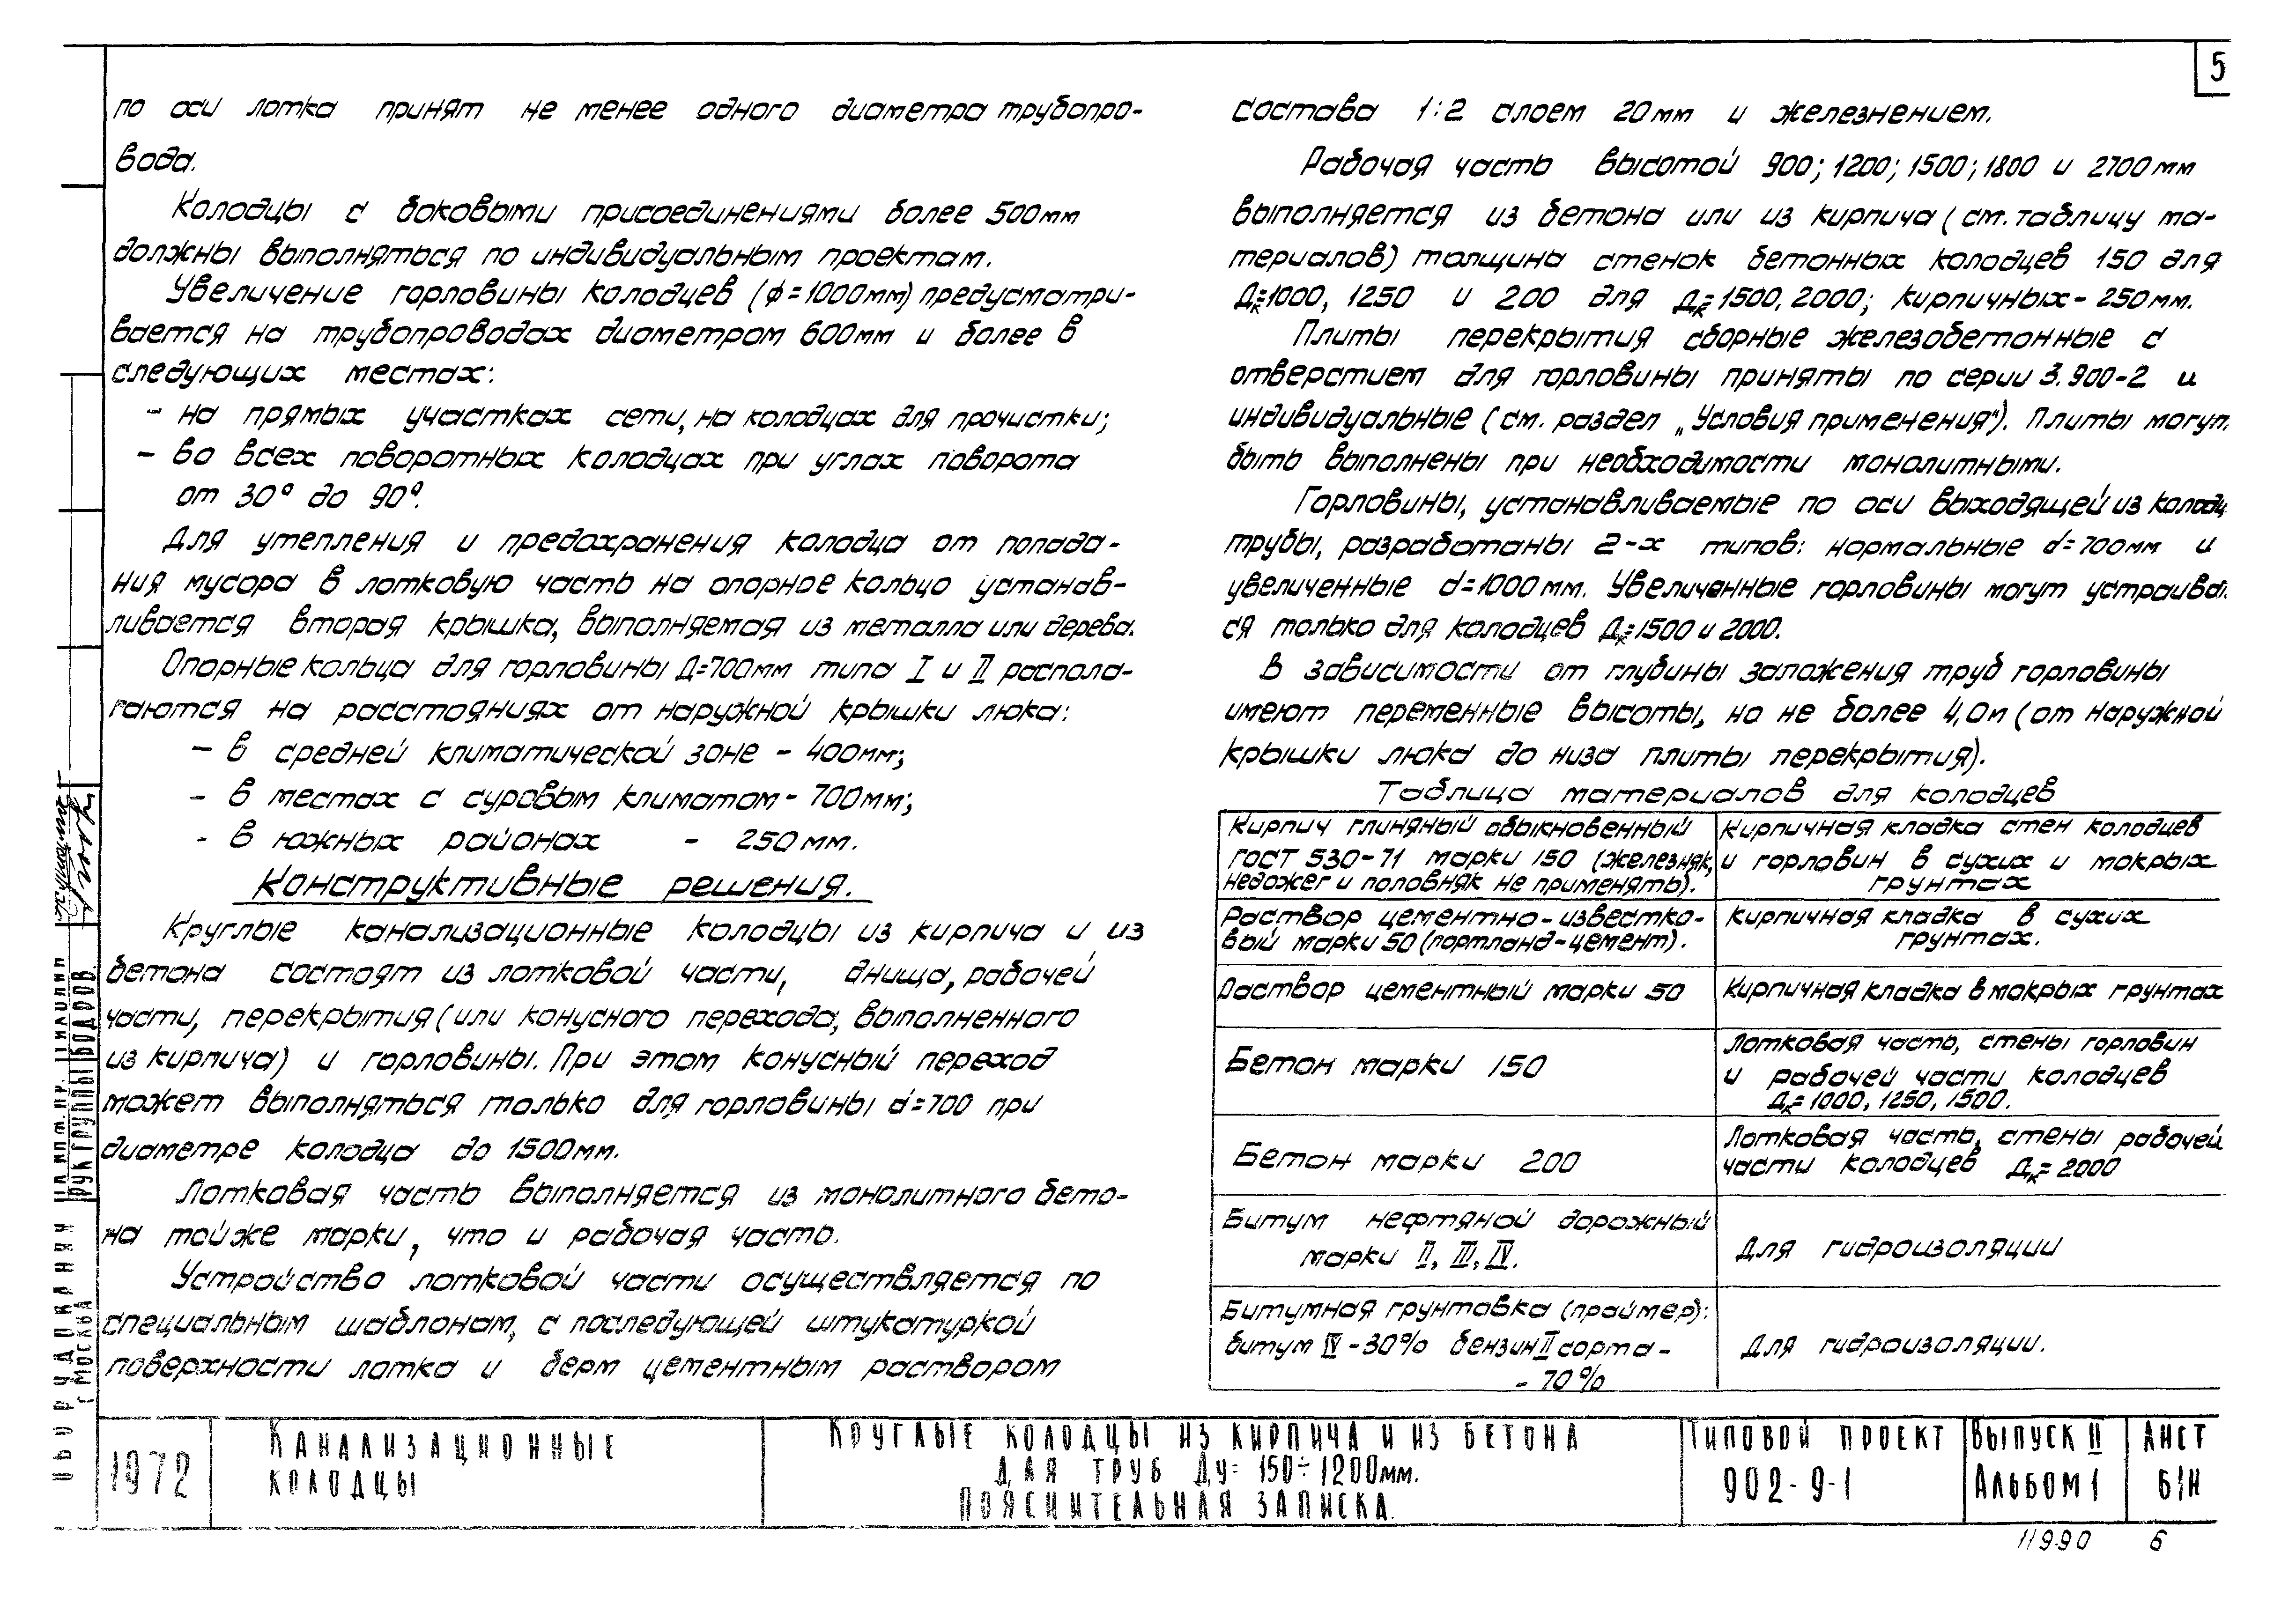 5
по оси лотка принят не менее одного диаметра трубопро-
вода.
Колодцы с боковыми присоединениями более 500мм
должны выполняться по индивидуальным проектам.
Увеличение горловины колодцев (ϕ=1000мм) предусматри-
вается на трубопроводах диаметром 600мм и более в
следующих местах:
- на прямых участках сети, на колодцах для прочистки;
- во всех поворотных колодцах при углах поворота
от 30° до 90°.
Для утепления и предохранения колодца от попада-
ния мусора в лотковую часть на опорное кольцо устанав-
ливается вторая крышка, выполняемая из металла или дерева.
Опорные кольца для горловины Д=700мм типа I и II распола-
гаются на расстояниях от наружной крышки люка:
- в средней климатической зоне - 400мм;
- в местах с суровым климатом - 700мм;
- в южных районах - 250мм.
Конструктивные решения.
Круглые канализационные колодцы из кирпича и из
бетона состоят из лотковой части, днища, рабочей
части, перекрытия (или конусного перехода, выполненного
из кирпича) и горловины. При этом конусный переход
может выполняться только для горловины d=700 при
диаметре колодца до 1500мм.
Лотковая часть выполняется из монолитного бето-
на той же марки, что и рабочая часть.
Устройство лотковой части осуществляется по
специальным шаблонам, с последующей штукатуркой
поверхности лотка и берм цементным раствором
состава 1:2 слоем 20мм и железнением.
Рабочая часть высотой 900; 1200; 1500; 1800 и 2700мм
выполняется из бетона или из кирпича (см. таблицу ма-
териалов) толщина стенок бетонных колодцев 150 для
Дк=1000, 1250 и 200 для Дк=1500, 2000; кирпичных - 250мм.
Плиты перекрытия сборные железобетонные с
отверстием для горловины приняты по серии 3.900-2 и
индивидуальные (см. раздел „Условия применения"). Плиты могут
быть выполнены при необходимости монолитными.
Горловины, устанавливаемые по оси выходящей из колодц
трубы, разработаны 2-х типов: нормальные d=700мм и
увеличенные d=1000мм. Увеличенные горловины могут устраиват
ся только для колодцев Дк=1500 и 2000.
В зависимости от глубины заложения труб горловины
имеют переменные высоты, но не более 4,0м (от наружной
крышки люка до низа плиты перекрытия).
Таблица материалов для колодцев
Кирпич глиняный обыкновенный
ГОСТ 530-71 марки 150 (железняк,
недожег и половняк не применять).
Кирпичная кладка стен колодцев
и горловин в сухих и мокрых
грунтах
Раствор цементно-известко-
вый марки 50 (портланд-цемент).
Кирпичная кладка в сухих
грунтах.
Раствор цементный марки 50
Кирпичная кладка в мокрых грунтах
Бетон марки 150
Лотковая часть, стены горловин
и рабочей части колодцев
Дк=1000, 1250, 1500.
Бетон марки 200
Лотковая часть, стены рабочей
части колодцев Дк=2000
Битум нефтяной дорожный
марки II, III, IV.
Для гидроизоляции
Битумная грунтовка (праймер):
битум IV - 30% бензин II сорта -
- 70%
Для гидроизоляции.
РУК ГРУППЫ БОДРОВ.
г. МОСКВА
1972
КАНАЛИЗАЦИОННЫЕ
КОЛОДЦЫ
КРУГЛЫЕ КОЛОДЦЫ ИЗ КИРПИЧА И ИЗ БЕТОНА
ДЛЯ ТРУБ Ду= 150÷1200мм.
ПОЯСНИТЕЛЬНАЯ ЗАПИСКА.
ТИПОВОЙ ПРОЕКТ
902-9-1
ВЫПУСК II
АЛЬБОМ 1
ЛИСТ
Б/Н
11990 6